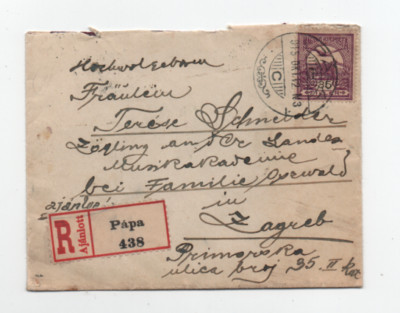 Hochwolgeboren
Fräulein
Terése Schneider
Zögling an der Landes
Musikakademie
bei Familie Osewald
in
ajánlott
Zagreb
Primorska
ulica broj 35. II kat
R
Ajánlott
Pápa
438
C
35